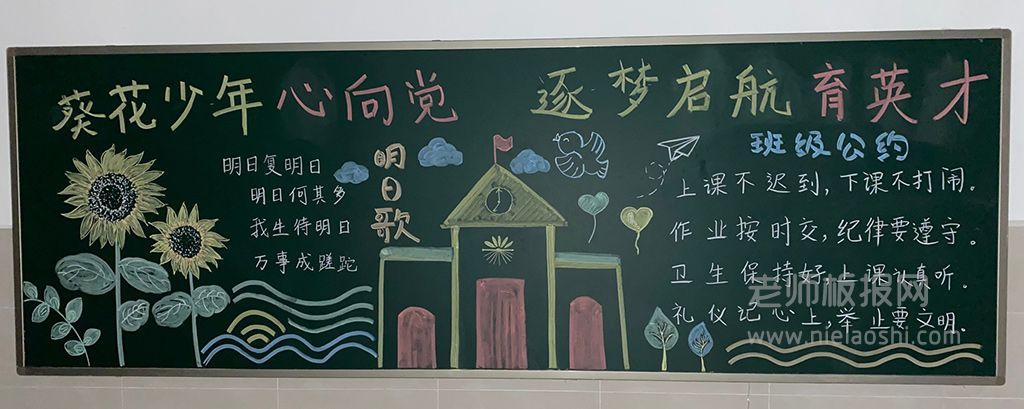 葵花少年心向党 逐梦启航育英才
明日歌
明日复明日
明日何其多
我生待明日
万事成蹉跎
班级公约
上课不迟到，下课不打闹。
作业按时交，纪律要遵守。
卫生保持好，上课认真听。
礼仪记心上，举止要文明。
老师板报网
www.nielaoshi.com